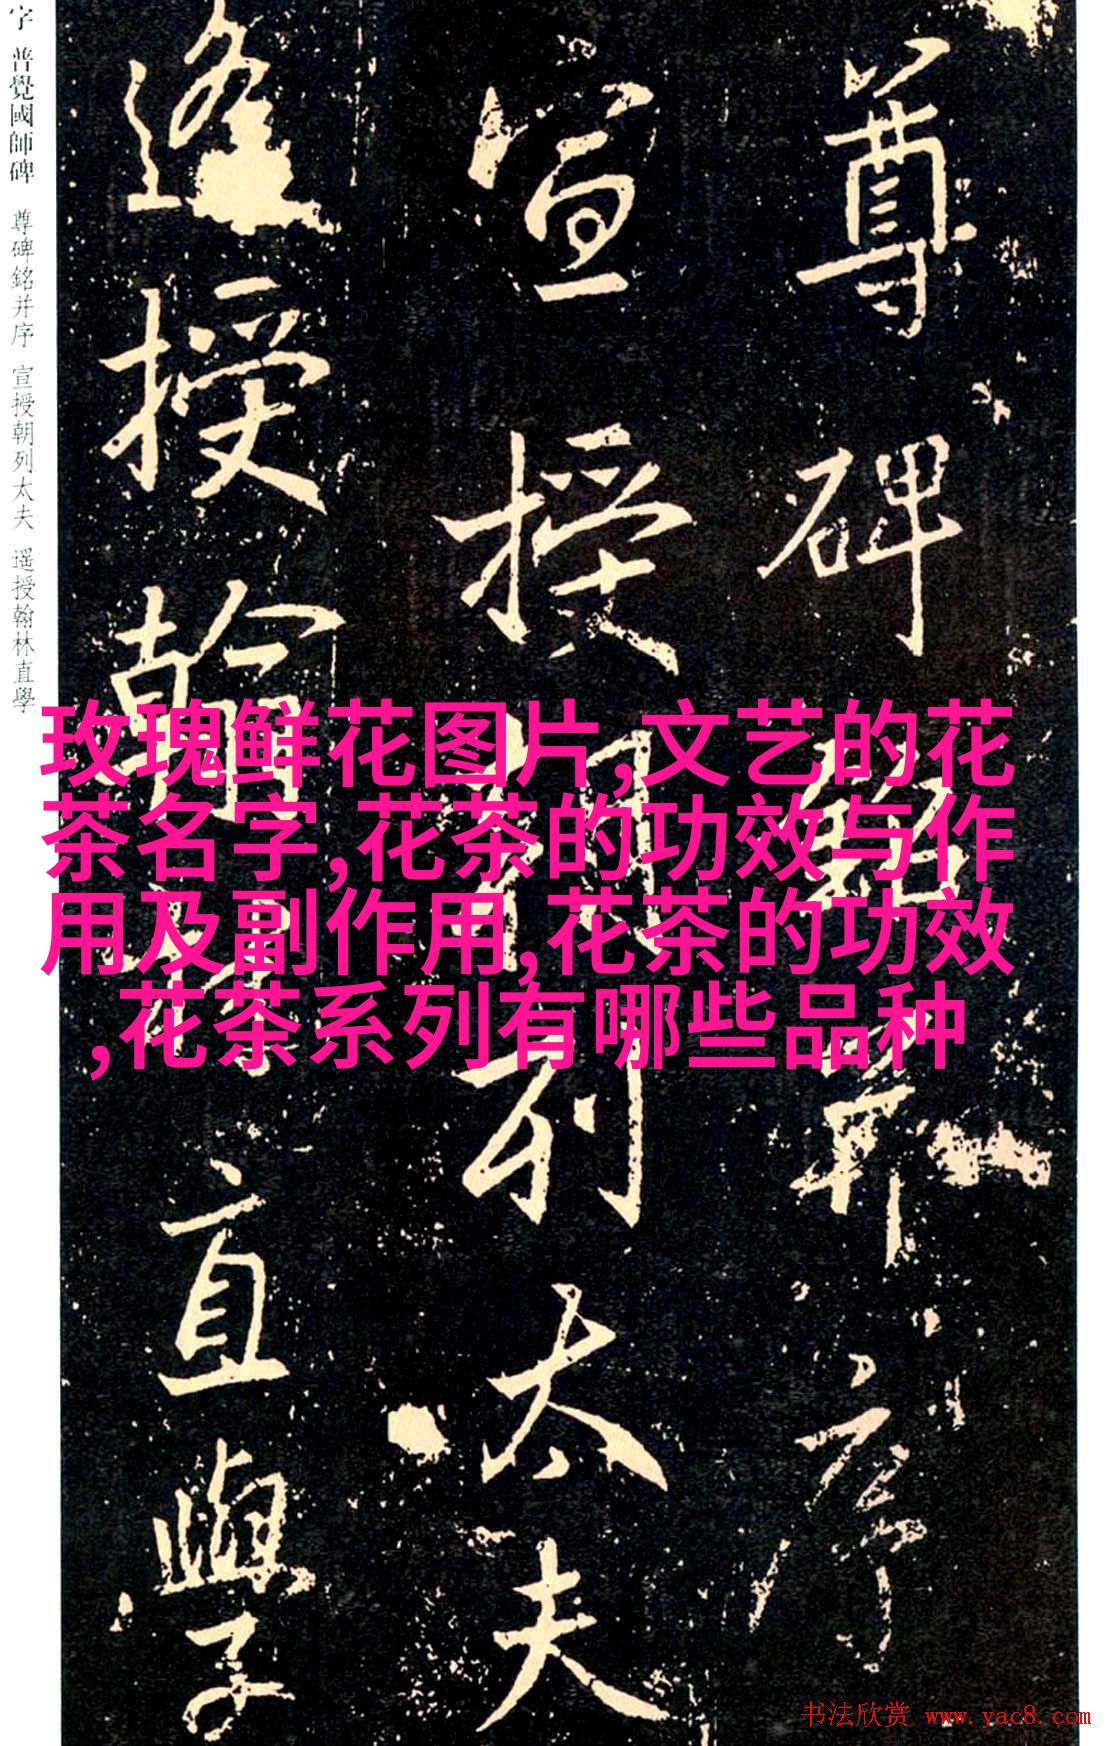 尊碑銘并序
宣授朝列太夫
遥授翰林直學
字 普覺國師碑 尊碑銘并序 宣授朝列太夫 遥授翰林直學
玫瑰鲜花图片,文艺的花
茶名字,花茶的功效与作
用及副作用,花茶的功效
,花茶系列有哪些品种
书法欣赏 www.yac8.com